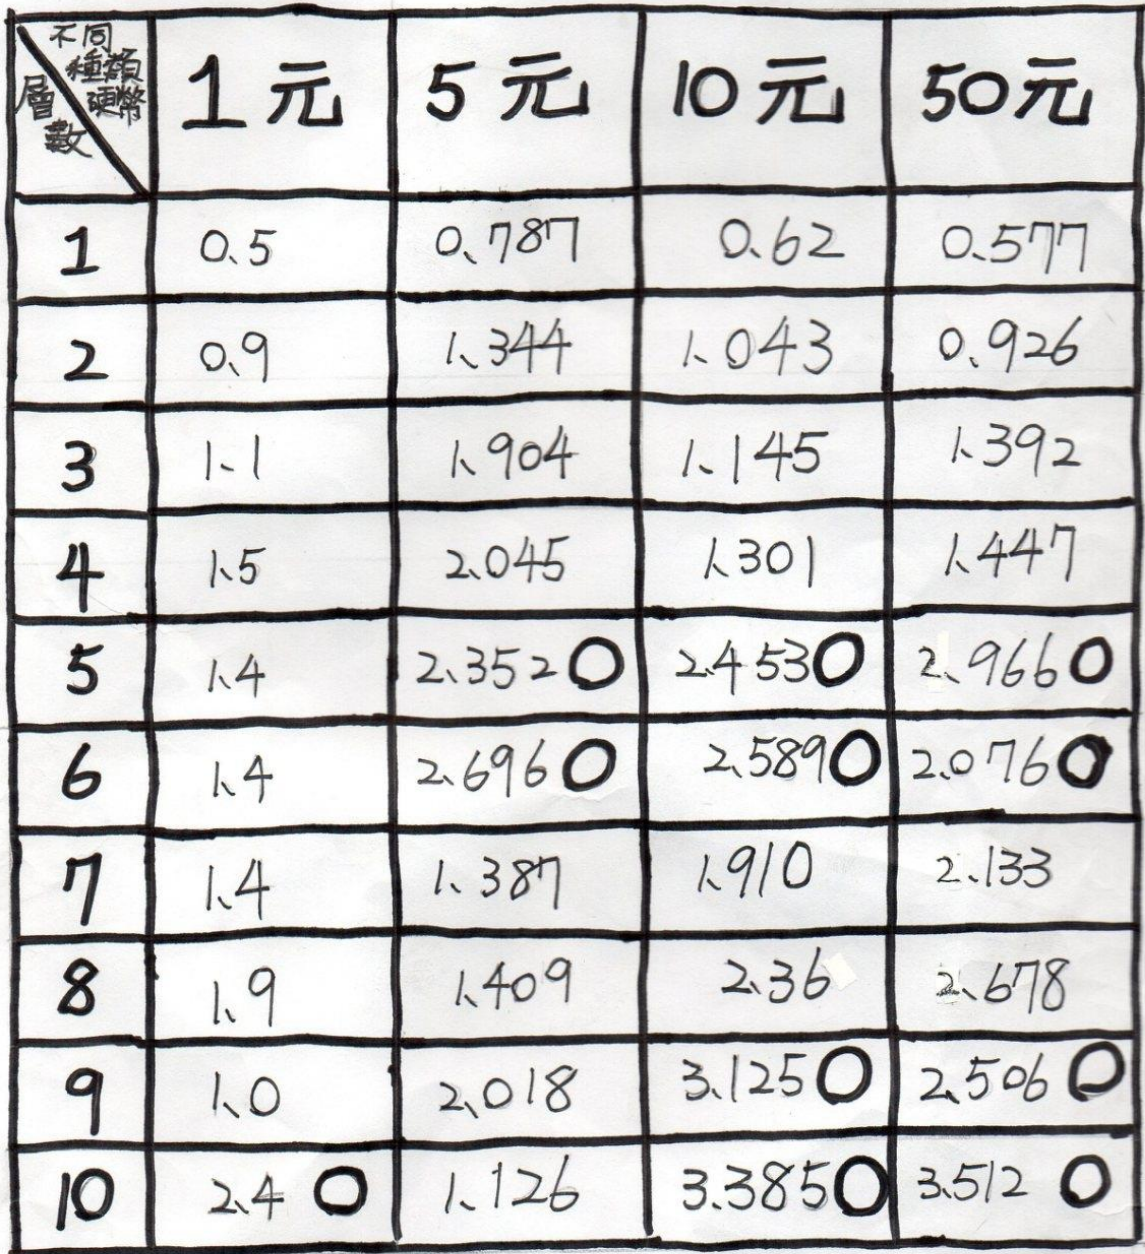 不同
種類
硬幣
層
數
1元 5元 10元 50元
1 0.5 0.787 0.62 0.577
2 0.9 1.344 1.043 0.926
3 1.1 1.904 1.145 1.392
4 1.5 2.045 1.301 1.447
5 1.4 2.352 O 2.453 O 2.966 O
6 1.4 2.696 O 2.589 O 2.076 O
7 1.4 1.387 1.910 2.133
8 1.9 1.409 2.36 2.678
9 1.0 2.018 3.125 O 2.506 O
10 2.4 O 1.126 3.385 O 3.512 O